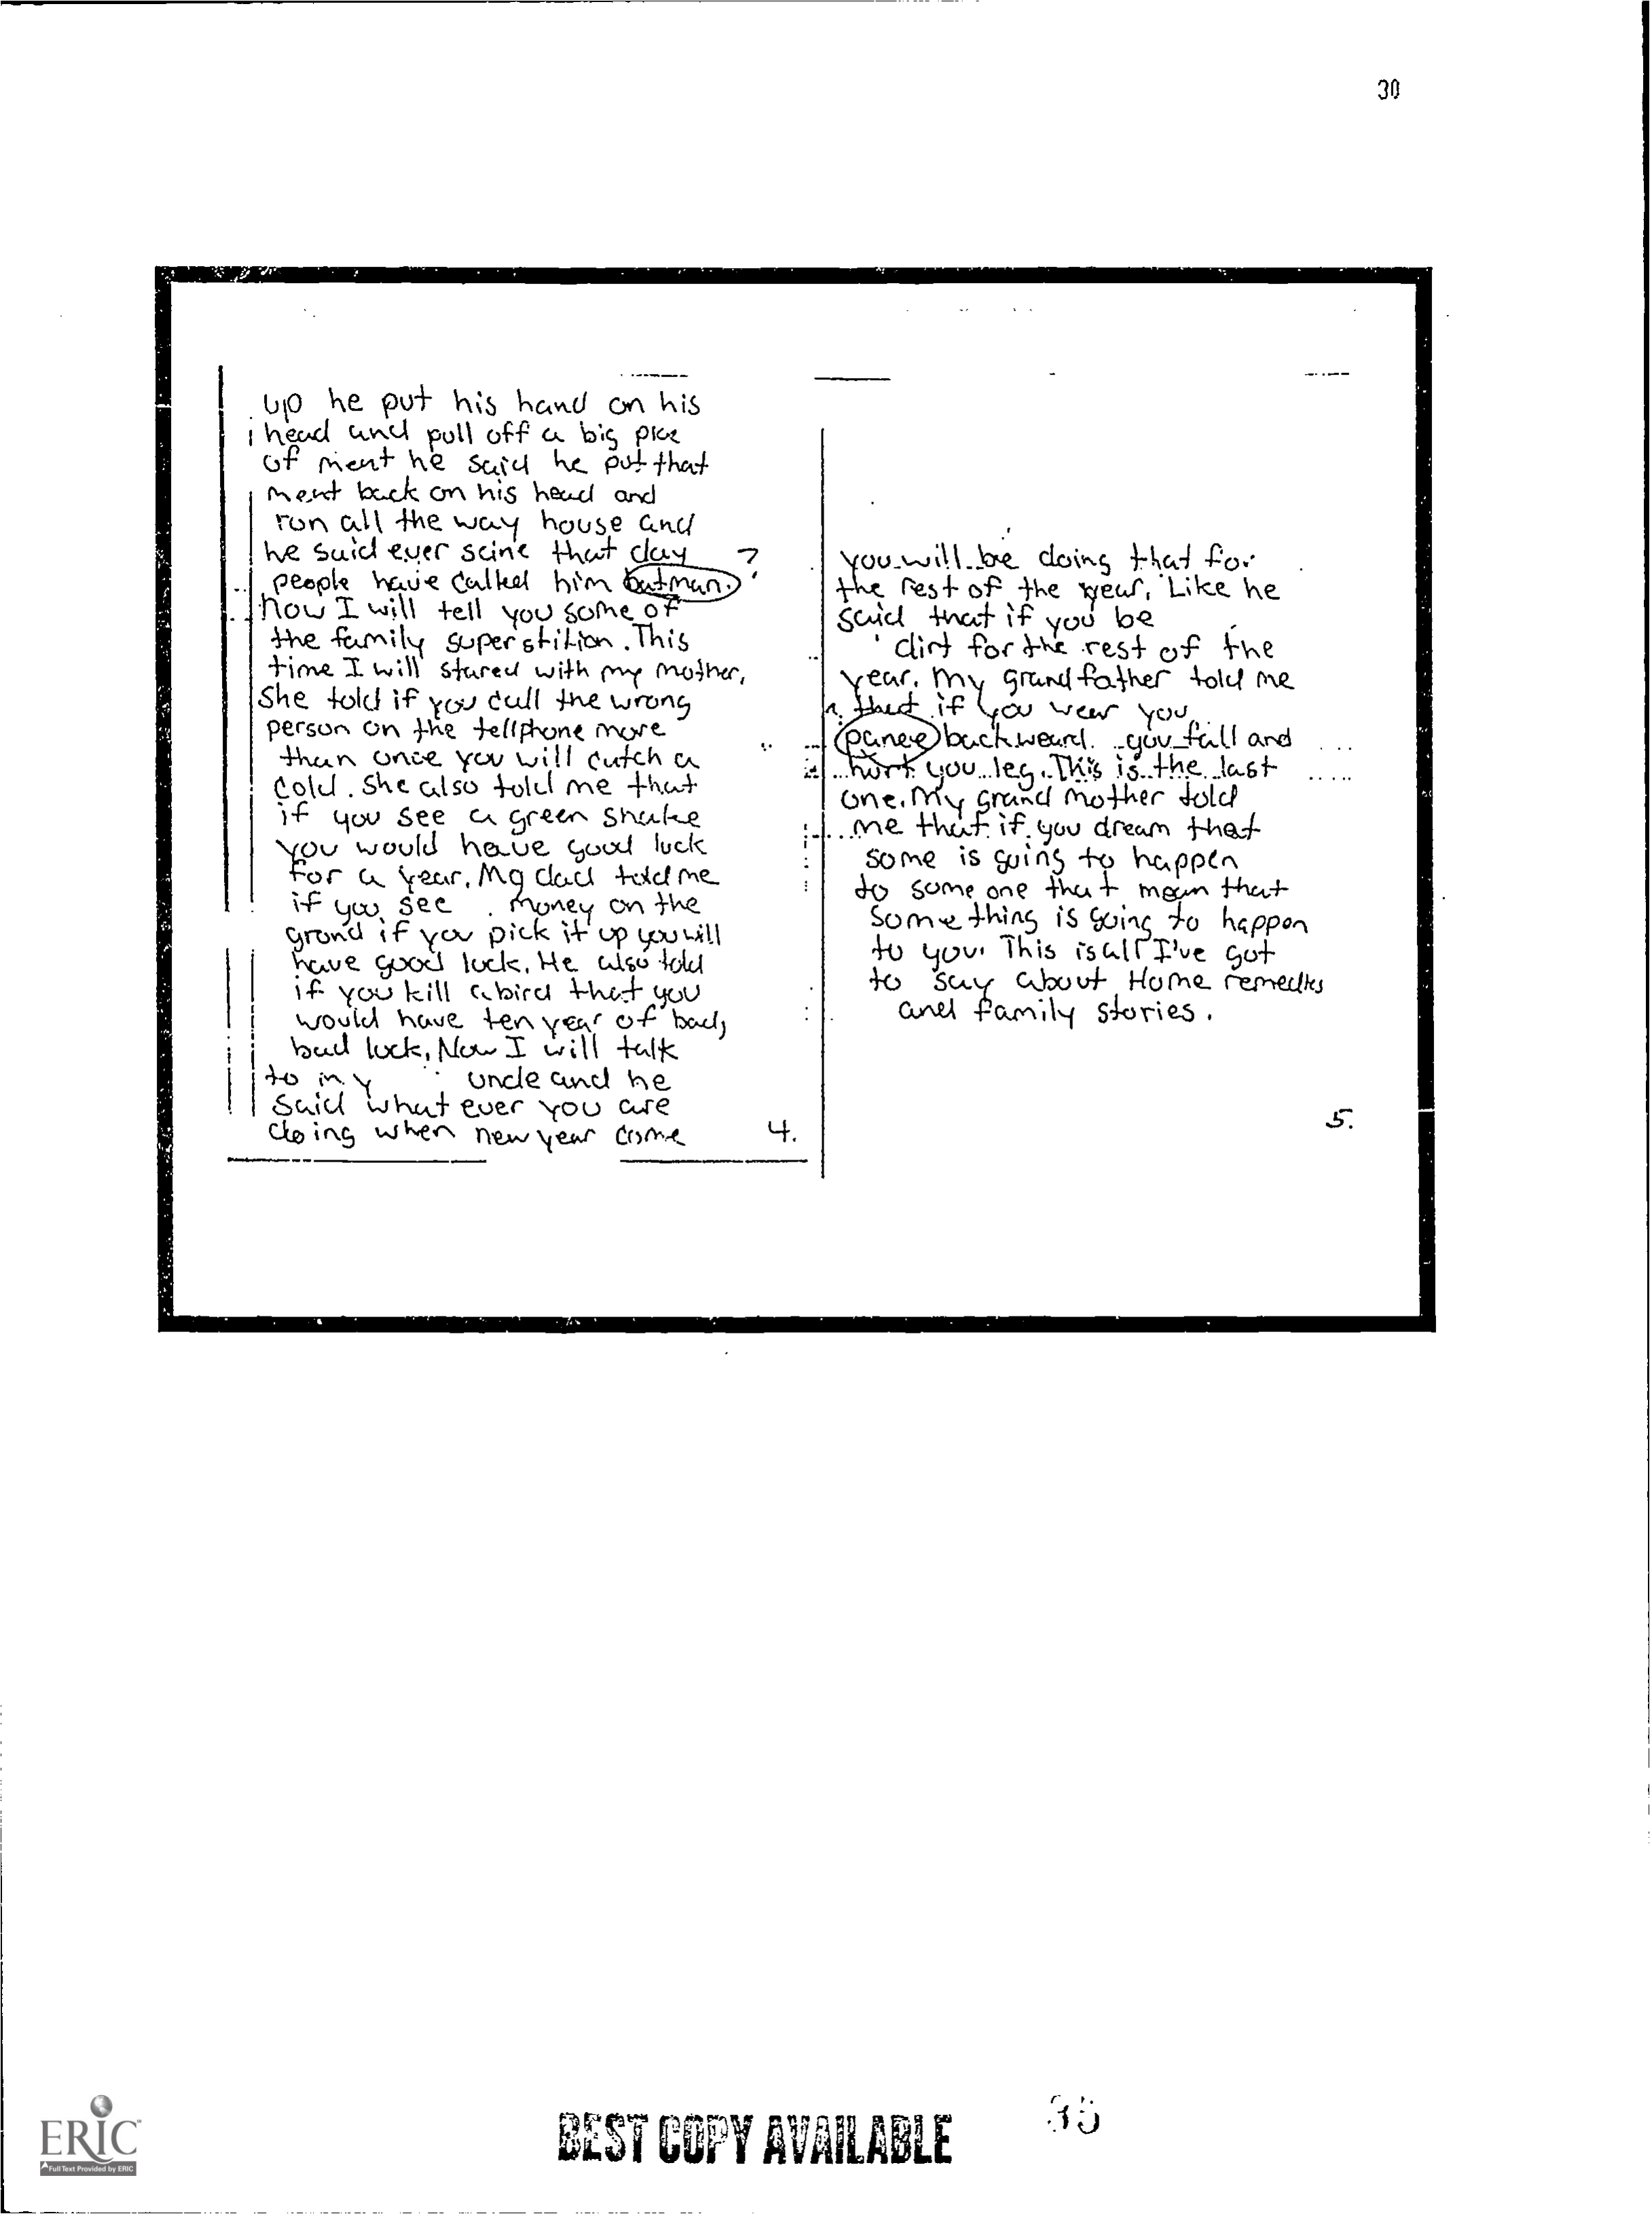 30
up he put his hand on his
head and pull off a big pice
of ment he said he put that
ment back on his head and
run all the way house and
he said ever scine that day
people have called him batman. ?
now I will tell you some of
the family superstition. This
time I will stared with my mother,
She told if you call the wrong
person on the tellphone more
than once you will cutch a
cold. She also told me that
if you see a green snake
you would have good luck
for a year. My dad told me
if you see money on the
grond if you pick it up you will
have good luck. He also told
if you kill a bird that you
would have ten year of bad,
bad luck. Now I will talk
to my uncle and he
said what ever you are
doing when new year come
4.
you will be doing that for
the rest of the year. Like he
said that if you be
dirt for the rest of the
year. my grandfather told me
that if you wear you
panee backweard you fall and
hurt you leg. This is the last
one. My grand mother told
me that if you dream that
some is going to happen
to some one that mean that
some thing is going to happen
to you. This is all I've got
to say about Home remedies
and family stories.
5.
ERIC
Full Text Provided by ERIC
BEST COPY AVAILABLE
35